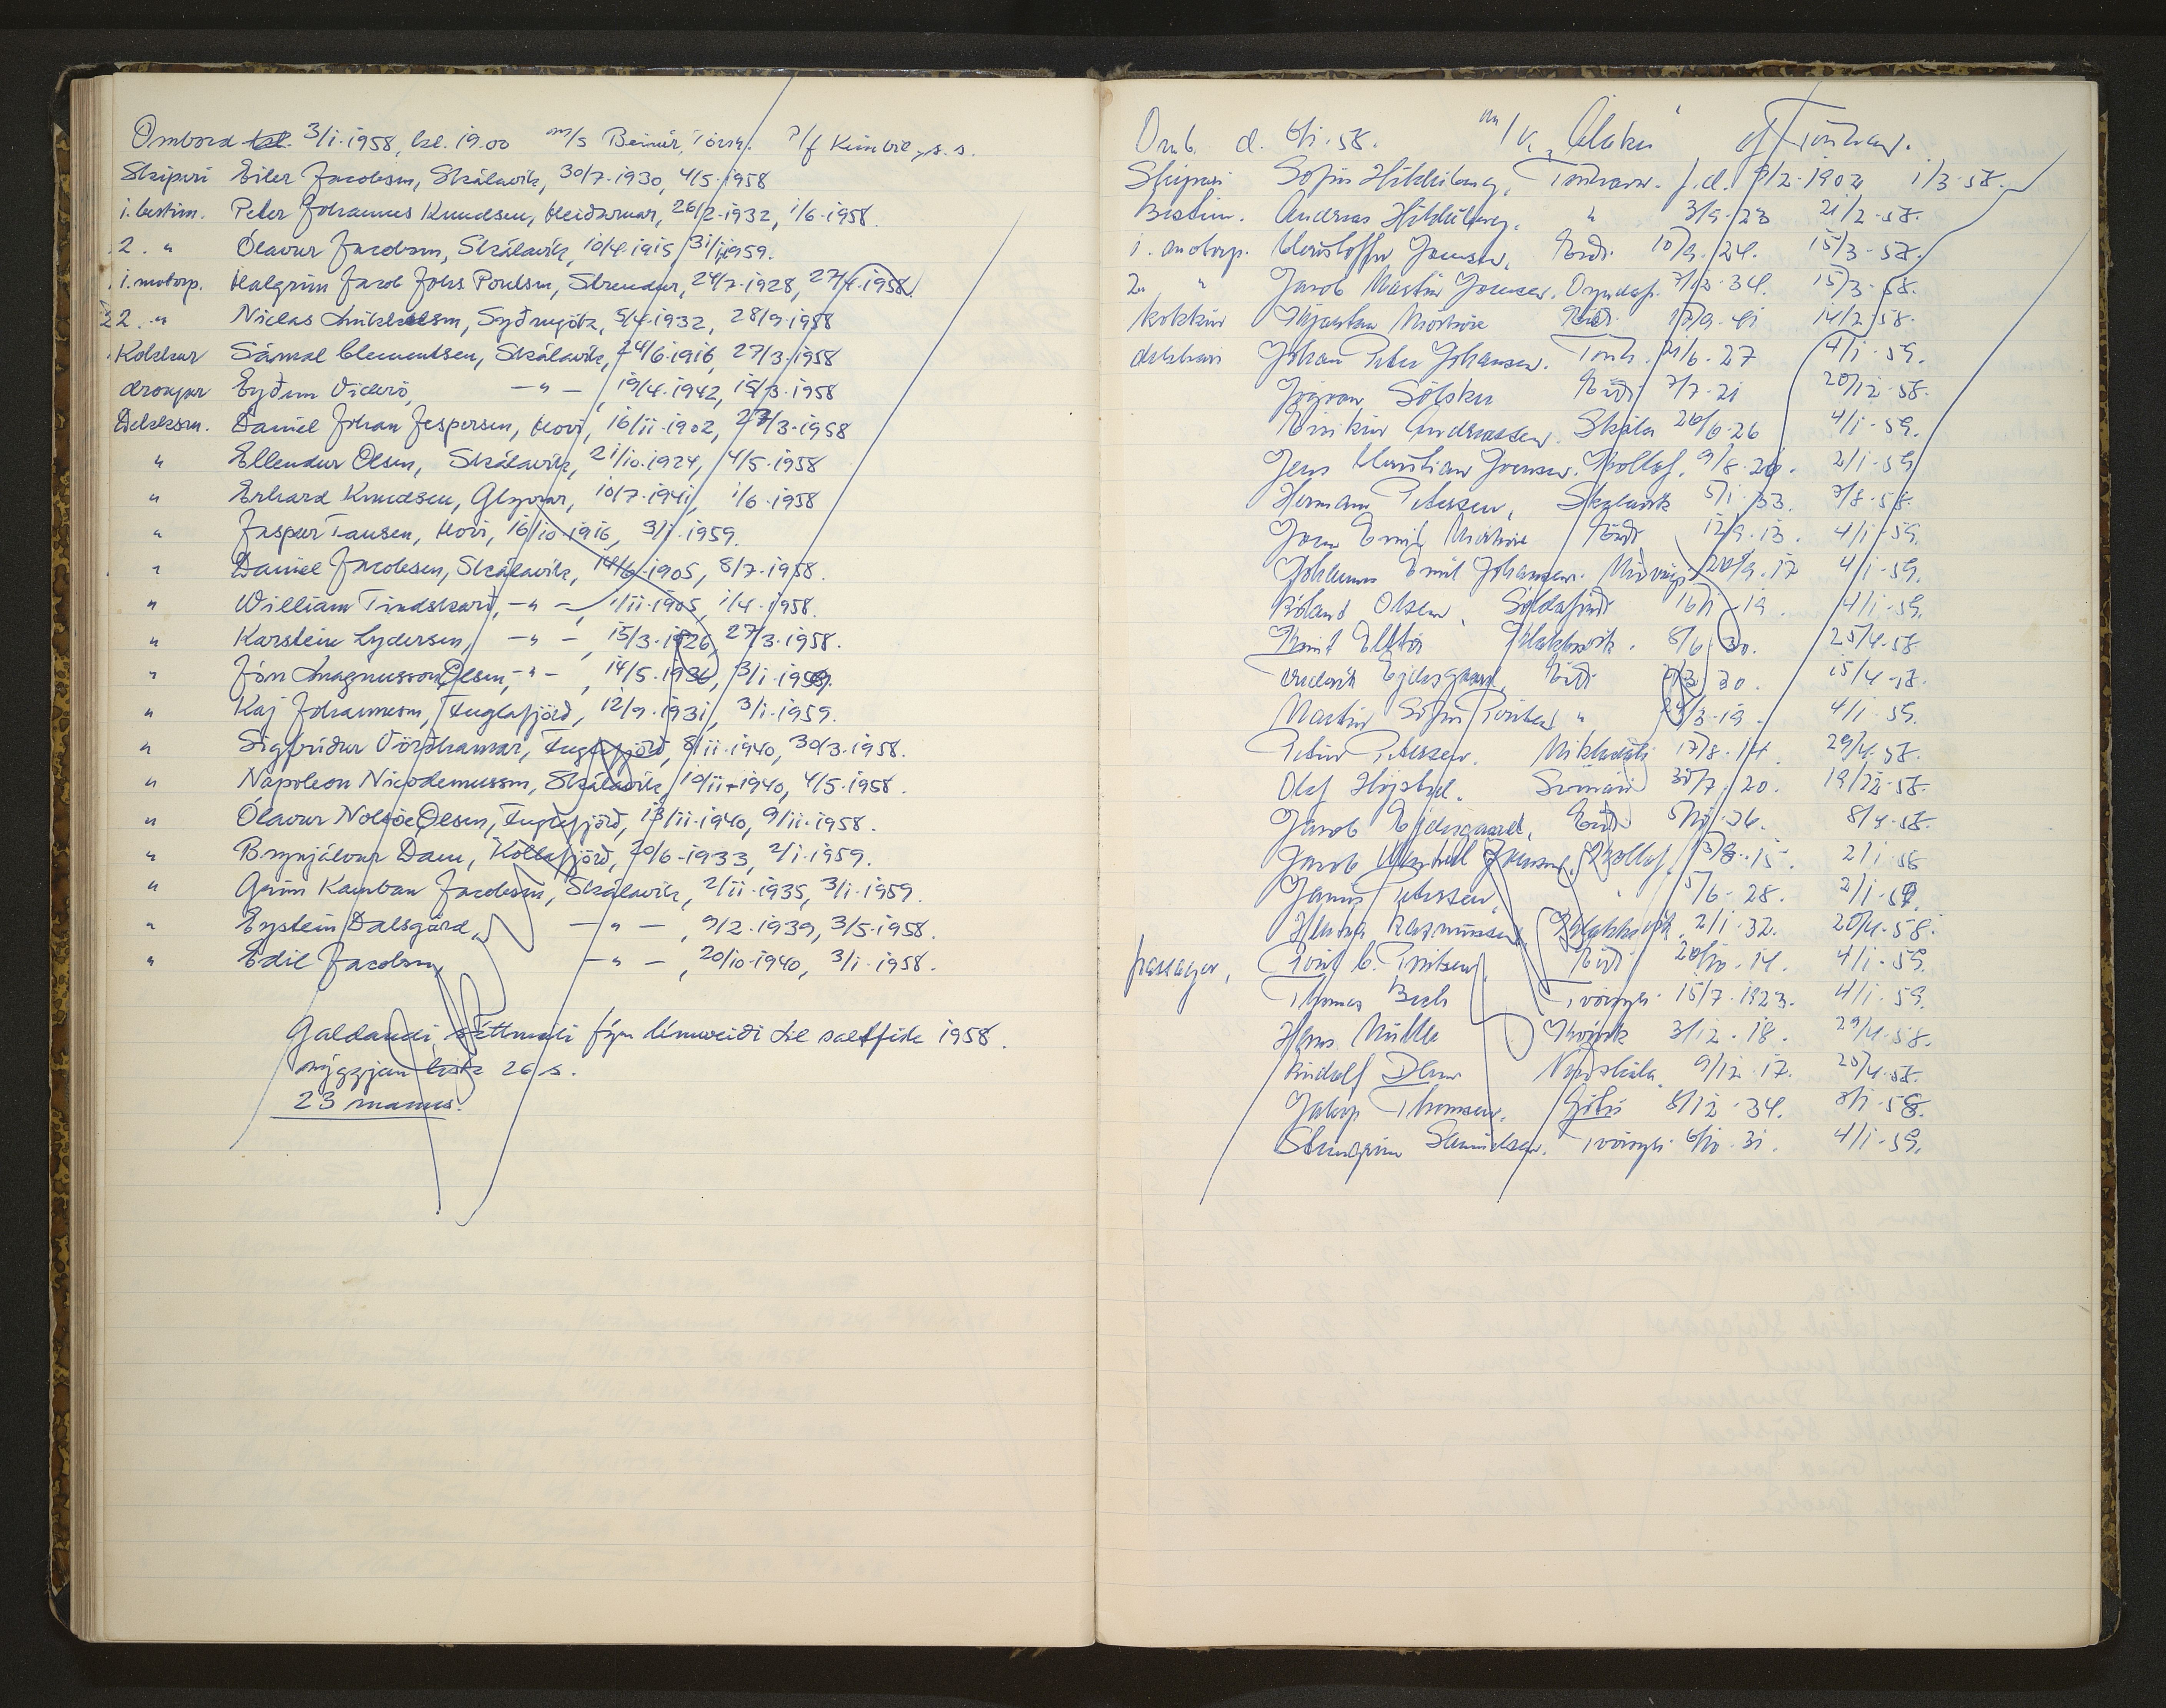 Ombord kl. 3/1-1958, kl. 19.00 m/s Beinir, Tórsh. P/f Kimbil, s.s.
Skipari Eiler Jacobsen, Skálavík, 30/7-1930, 4/5-1958
1. bestm. Peter Johannus Knudsen, Heiðarnar, 26/2-1932, 1/6-1958.
2. " Ólavur Jacobsen, Skálavík, 10/4-1915, 3/1-1959.
1. motorp. Halgrim Jacob Johs Poulsen, Strendur, 24/7-1928, 27/1-1958
2. " Niclas Mikkelsen, Syðrugøtu, 5/4-1932, 28/9-1958
Kokkur Sámal Clementsen, Skálavík, 24/6-1916, 27/3-1958
drongur Eyðun Viderö, - " -, 19/4-1942, 15/3-1958
Dekksm. Daniel Johan Jespersen, Hovi, 16/11-1902, 27/3-1958
" Ellendur Olsen, Skálavík, 21/10-1924, 4/5-1958
" Erhard Knudsen, Glyvrar, 10/7-1941, 1/6-1958
" Jaspur Tausen, Hovi, 16/10-1916, 3/1-1959.
" Daniel Jacobsen, Skálavík, 14/6-1905, 8/7-1958.
" William Tindskarð, - " -, 1/11-1905, 1/4-1958.
" Karstein Lydersen, - " -, 15/3-1926, 27/3-1958.
" Jón Magnusson Olsen, - " -, 14/5-1936, 3/1-1959.
" Kaj Johannesen, Fuglafjörð, 12/9-1931, 3/1-1959.
" Sigfríður Vördhamar, Fuglafjörð, 8/11-1940, 30/3-1958.
" Napoleon Nicodemussen, Skálavík, 19/11-1940, 4/5-1958.
" Ólavur Nolsöe Olsen, Fuglafjörð, 13/11-1940, 9/11-1958.
" Brynjálvur Dam, Kollafjörð, 20/6-1933, 2/1-1959.
" Grím Kamban Jacobsen, Skálavík, 2/11-1935, 3/1-1959.
" Eystein Dalsgárd, - " -, 9/2-1939, 3/5-1958.
" Edil Jacobsen, - " -, 20/10-1940, 3/1-1958.
Galdandi sáttmáli fyri línuveiði til saltfisk 1958.
mýggjan lista 26 s.
23 manns.
Omb. d. 6/1-58. m/k af Tórshavn.
Skipari Sofus Tórshavn. f.d. 9/2-1902 1/3-58.
Bestm. Andreas " 3/9-23 21/2-58.
1. motorp. Joensen, Eiði 10/9-24. 15/3-58.
2. " Jacob Martin Joensen. 7/12-34. 15/3-58.
Kokkur Mörköre Eiði 14/2-58.
dekkari Johan Peter Johansen. Tórsh. 21/6-27 4/1-59.
Sólsker Eiði 7/7-21 20/12-58.
Eirikur Andreassen. Skála 20/6-26 4/1-59.
Jens Christian Joensen. Kollaf. 9/8-20. 2/1-59
Herman Petersen, Skálavík 5/1-33. 7/8-58.
Joen Emil Mörköre Eiði 12/9-13. 4/1-59.
Johannus Emil Johansen. Miðvági 20/9-17 4/1-59.
Roland Olsen, Søldafjord 16/1-19. 4/1-59.
Knút Elttør Klakksvík. 8/6-30. 25/4-58
Eidesgaard, Eiði 30. 15/4-58.
Martin Sofus Poulsen " 3-19. 4/1-59.
Petur Petersen. 17/8-14. 29/4-58.
Olaf Højsted. 30/7-20. 19/12-58.
Jacob Eidesgaard, Eiði 26. 8/4-58.
Jacob Joensen, Kollaf. 13/8-15. 2/1-58
Janus Petersen, " 5/6-28. 2/1-59.
Rasmussen, Klakksvík 2/1-32. 20/4-58.
passager, C. Poulsen, Eiði 20/10-14. 4/1-59.
Thomas Bech Tvøroyri 15/7-1923. 4/1-59.
Hans Müller 3/12-18. 29/4-58.
Rudolf Dam Norðskála 9/12-17. 25/4-58.
Jakup Thomsen. Gøtu 8/12-34. 8/1-58.
Steingrim Samuelsen. Tvøroyri 6/10-31. 4/1-59.